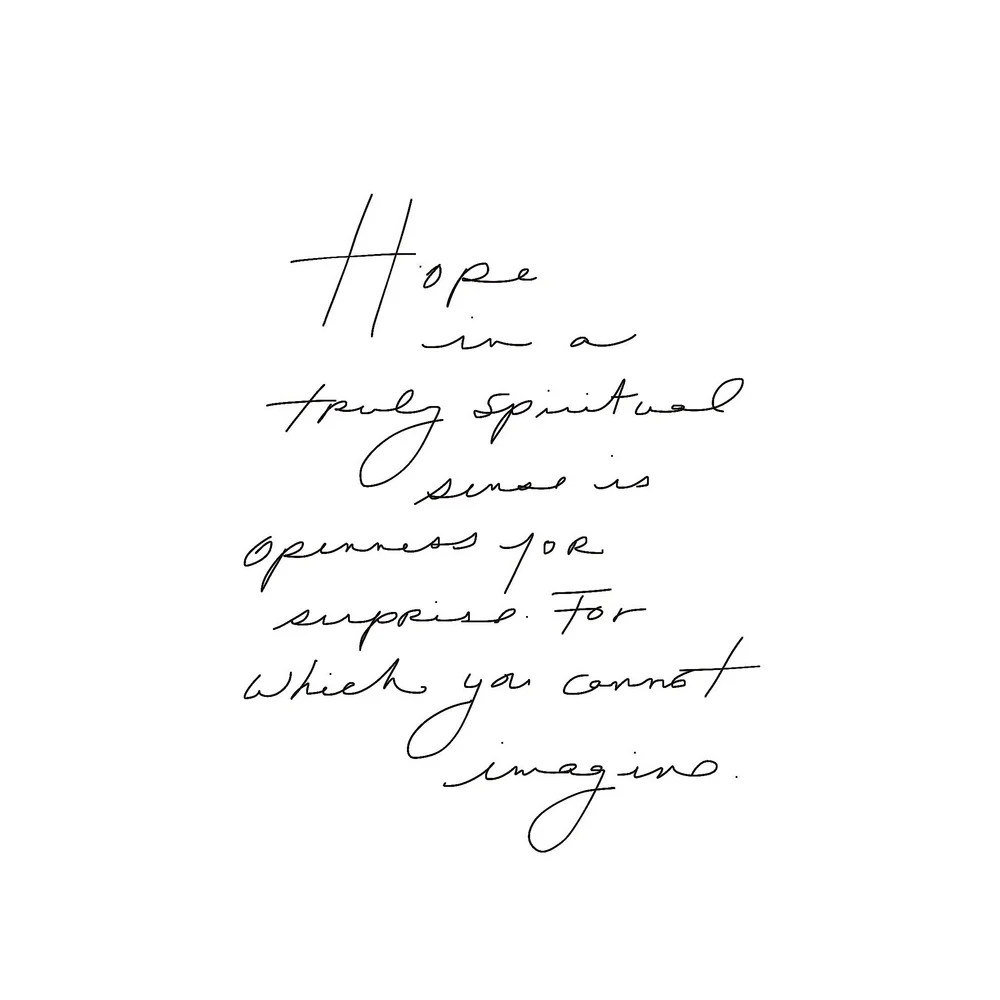 Hope
in a
truly spiritual
sense is
openness for
surprise. For
which you cannot
imagine.